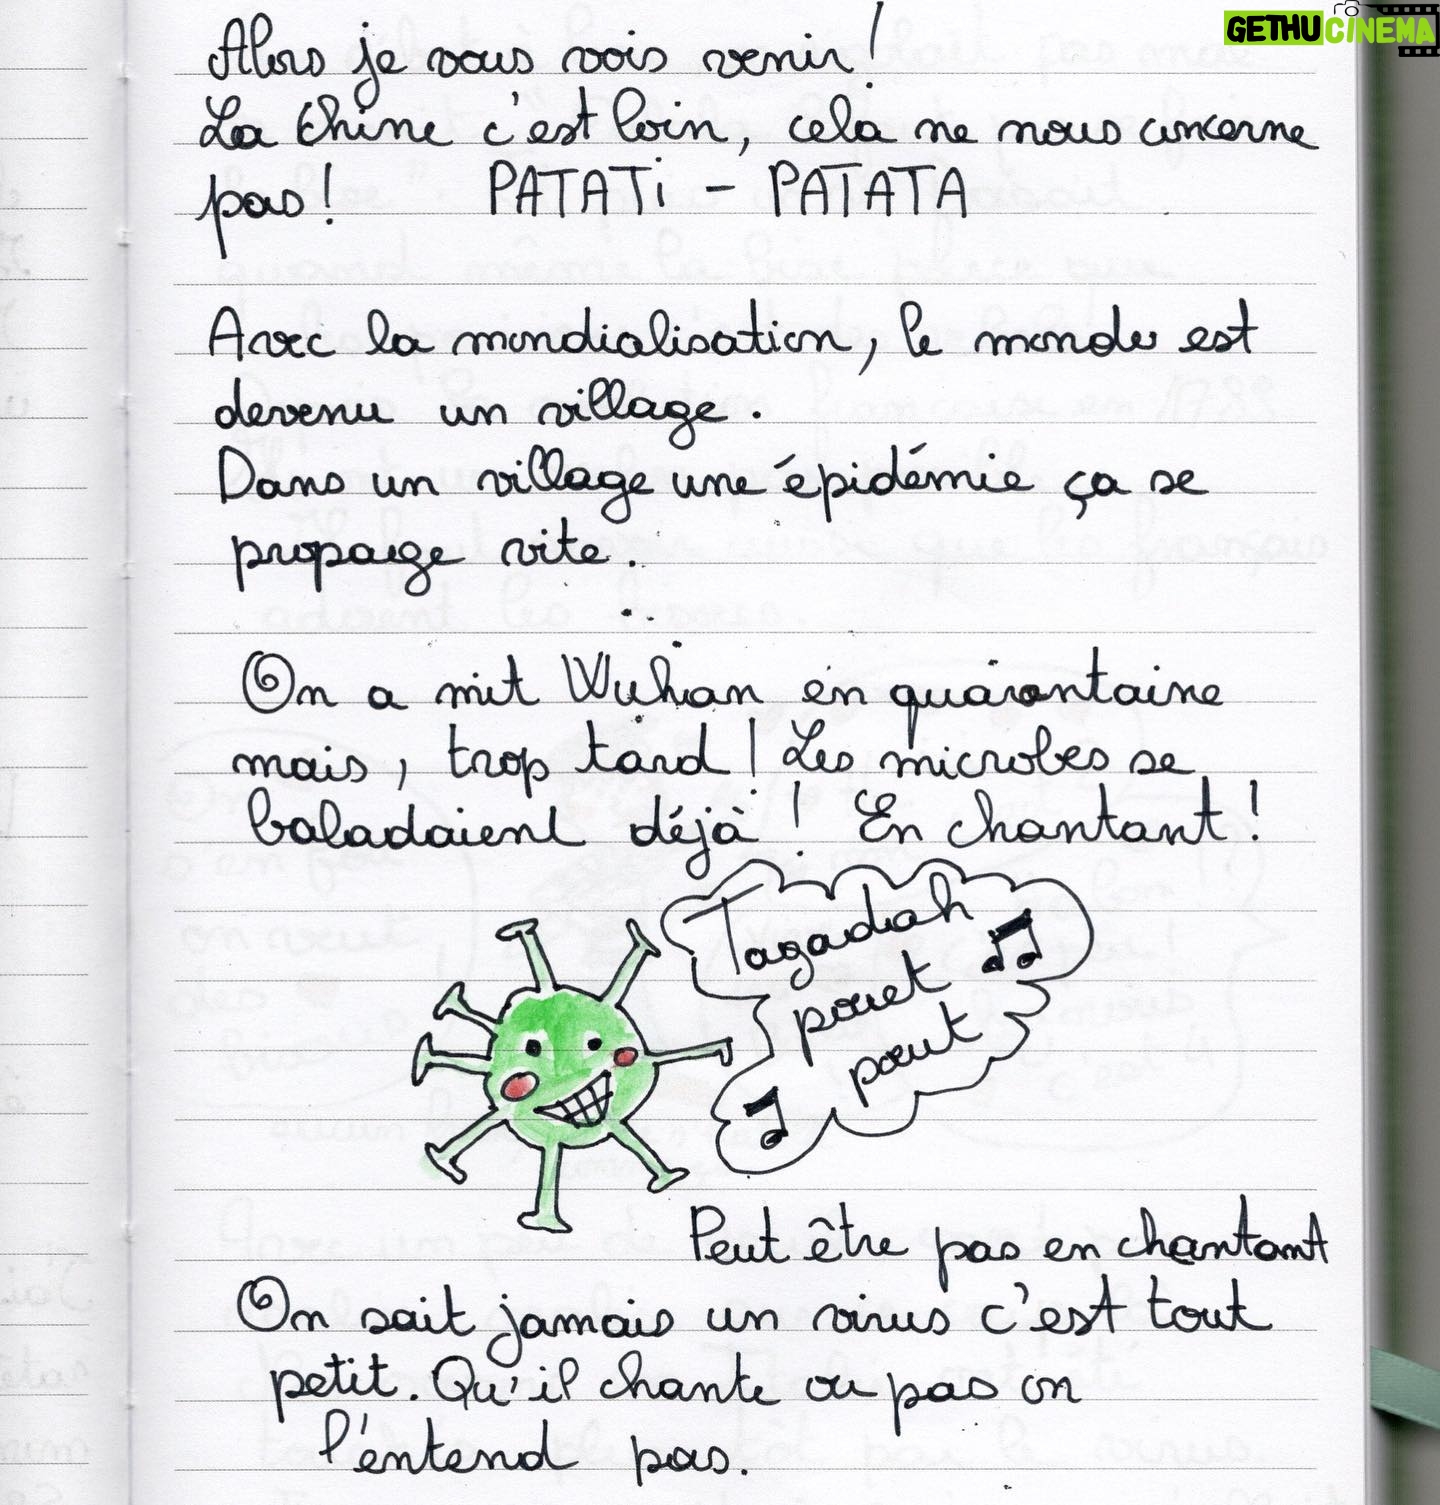 GETHUCINEMA
Alors je vous vois venir!
La Chine c'est loin, cela ne nous concerne
pas! PATATi - PATATA
Avec la mondialisation, le monde est
devenu un village.
Dans un village une épidémie ça se
propage vite.
On a mit Wuhan en quarantaine
mais, trop tard! Les microbes se
baladaient déjà! En chantant!
Tagadah
pouet
pouet
Peut être pas en chantant
On sait jamais un virus c'est tout
petit. Qu'il chante ou pas on
l'entend pas.